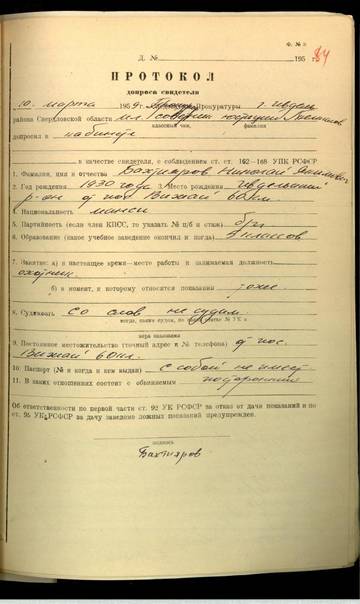 Ф. № 5
84
Д. № 195 г.
ПРОТОКОЛ
допроса свидетеля
10. марта 1959г. Прокуратуры г. Ивдель
района Свердловской области мл. советник юстиции Темпалов
классный чин, фамилия
допросил в кабинете
в качестве свидетеля, с соблюдением ст. ст. 162—168 УПК РСФСР
1. Фамилия, имя и отчество Бахтияров Николай Якимович
2. Год рождения 1930 года 3. Место рождения Ивдельский
р-он пос Вижай 60 км.
4. Национальность манси
5. Партийность (если член КПСС, то указать № п/б и стаж) б/п
6. Образование (какое учебное заведение окончил и когда) 5 классов
7. Занятие: а) в настоящее время—место работы и занимаемая должность
охотник
б) в момент, к которому относятся показания тоже
8. Судимость со слов не судим
когда, каким судом, по какой статье УК и
мера наказания
9. Постоянное местожительство (точный адрес и № телефона) от пос.
Вижай 60 км.
10. Паспорт (№ и когда и кем выдан) с собой не имеет
11. В каких отношениях состоит с обвиняемым посторонний
Об ответственности по первой части ст. 92 УК РСФСР за отказ от дачи показаний и по
ст. 95 УК РСФСР за дачу заведомо ложных показаний предупрежден.
подпись
Бахтияров